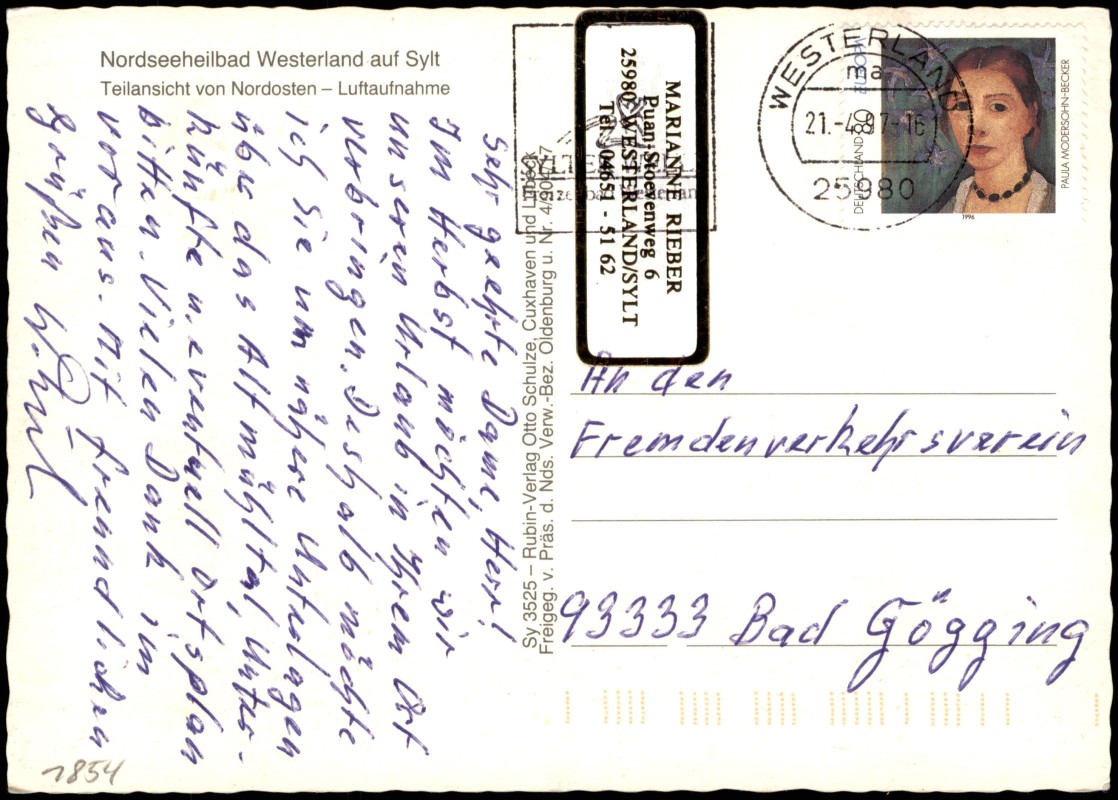 Nordseeheilbad Westerland auf Sylt
Teilansicht von Nordosten – Luftaufnahme
Sehr geehrte Dame, Herr!
Im Herbst möchten wir
unseren Urlaub in Ihrem Ort
verbringen. Deshalb möchte
ich Sie um nähere Unterlagen
über das Altmühltal, Unter-
künfte u. eventuell Ortsplan
bitten. Vielen Dank im
voraus. Mit freundlichen
Grüßen
1854
Sy 3525 – Rubin-Verlag Otto Schulze, Cuxhaven und Lübeck
Freigeg. v. Präs. d. Nds. Verw.-Bez. Oldenburg u. Nr. 4/90
MARIANNE RIEBER
Puan-Stoevenweg 6
25980 WESTERLAND/SYLT
Tel.: 04651 - 51 62
WESTERLAND
ma
21.-4.97-16
25980
DEUTSCHLAND 80
EUROPA
PAULA MODERSOHN-BECKER
1996
An den
Fremdenverkehrsverein
93333 Bad Gögging